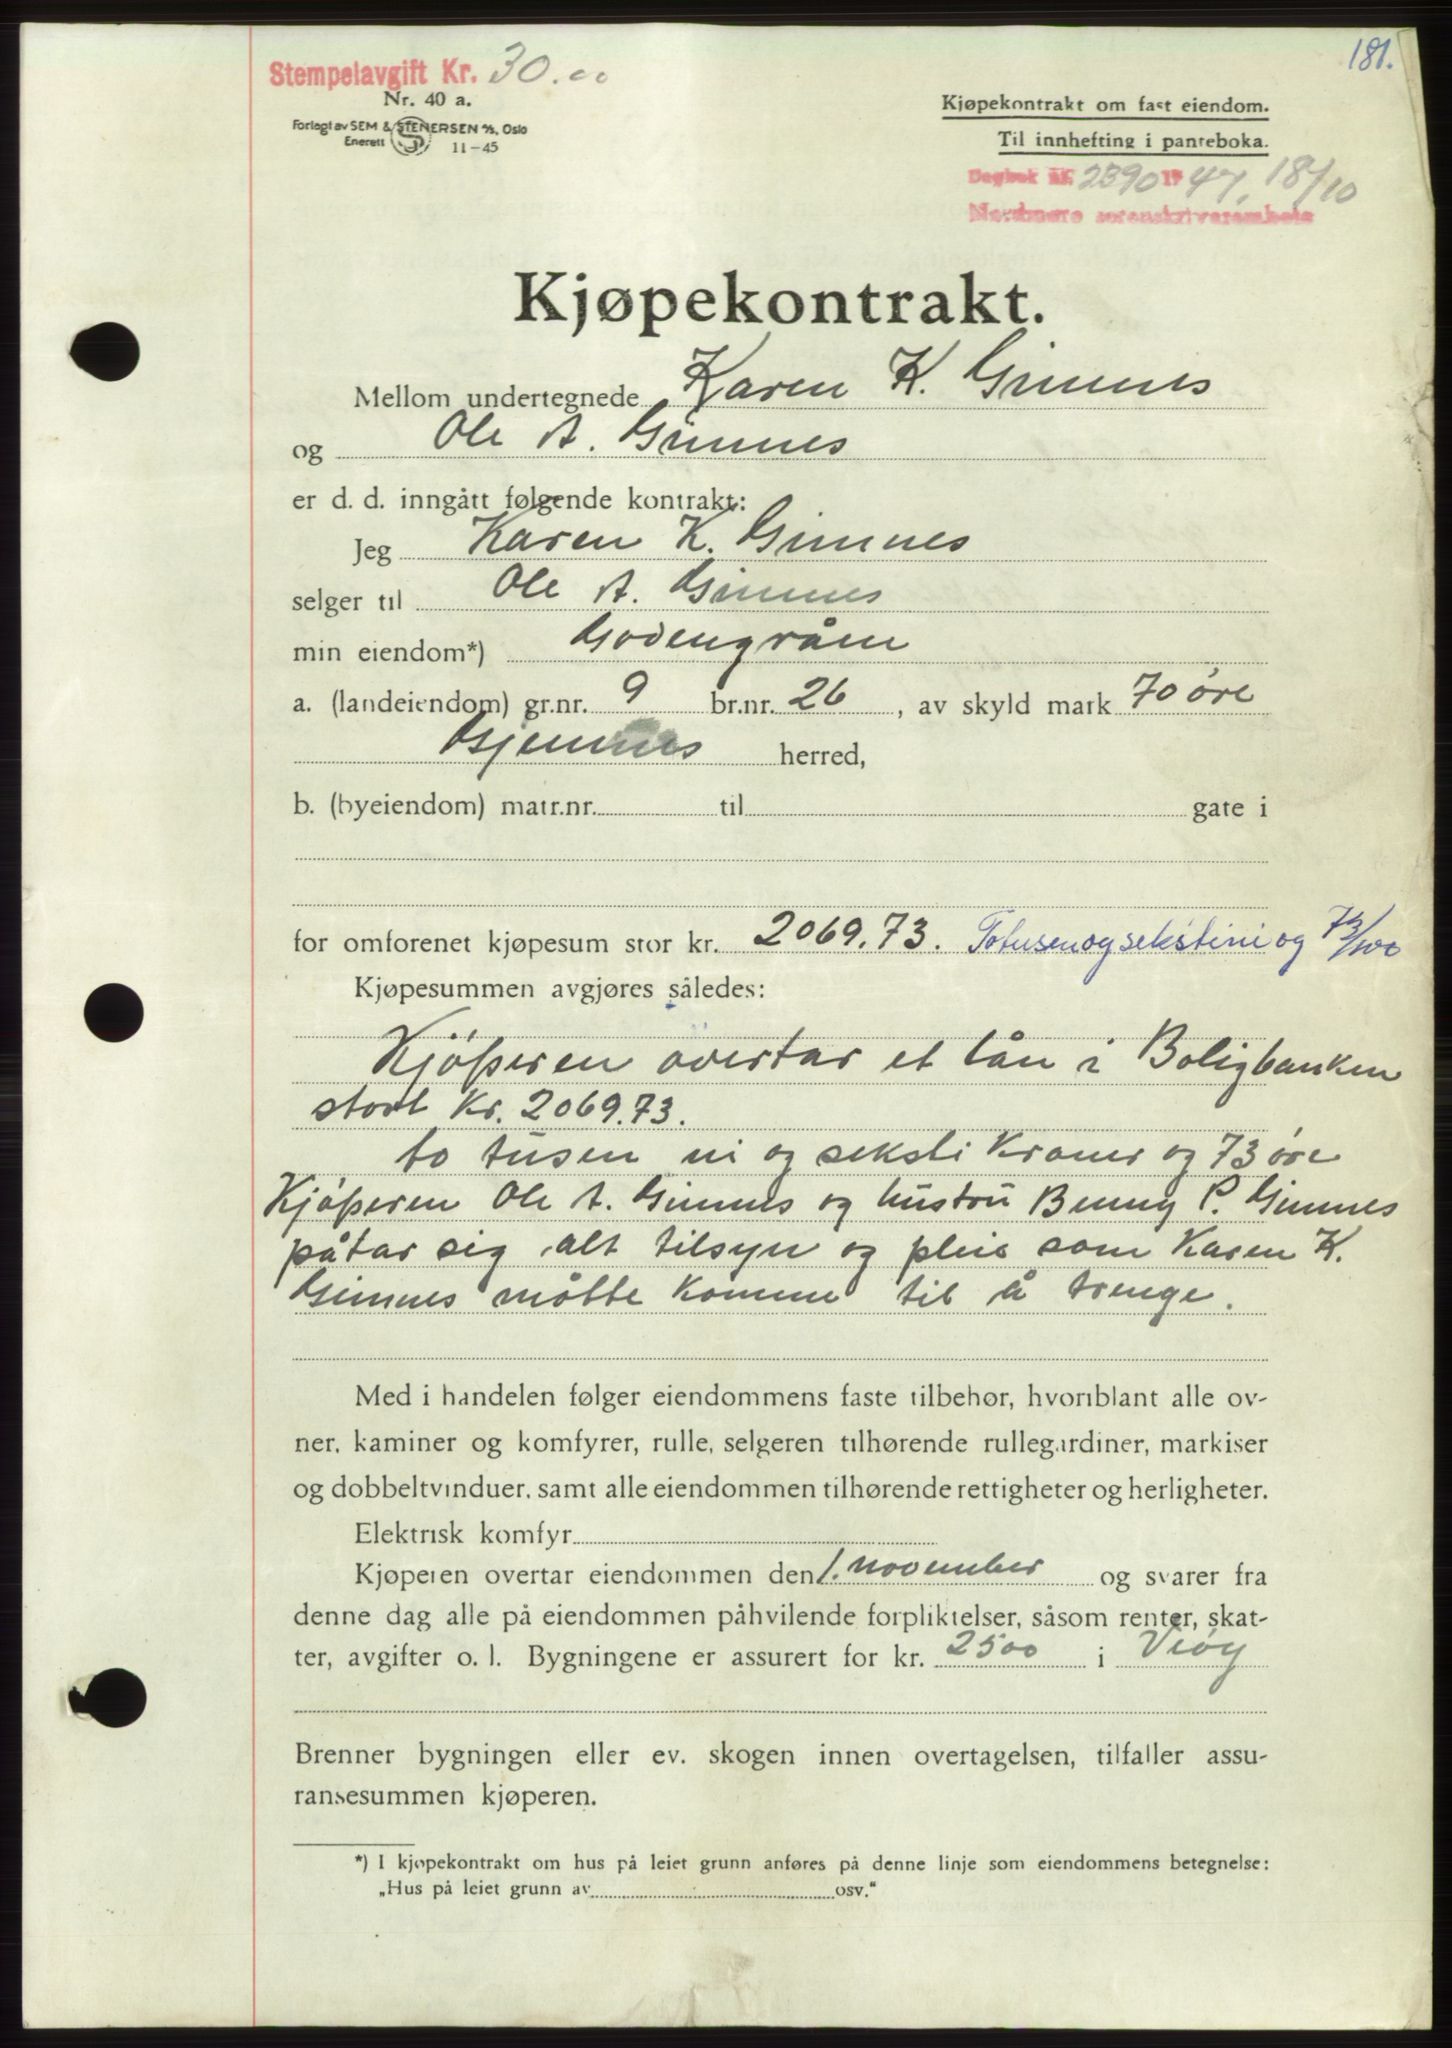 181.
Stempelavgift Kr. 30.00
Nr. 40 a.
Forlagt av SEM & STENERSEN A/S, Oslo
Enerett 11-45
Kjøpekontrakt om fast eiendom.
Til innhefting i panteboka.
Dagbok nr. 2390 19 47, 18/10
Nordmøre sorenskriverembete
Kjøpekontrakt.
Mellom undertegnede Karen K. Gimnes
og Ole A. Gimnes
er d. d. inngått følgende kontrakt:
Jeg Karen K. Gimnes
selger til Ole A. Gimnes
min eiendom*)
a. (landeiendom) gr.nr. 9 br.nr. 26, av skyld mark 70 øre
Gjemnes herred,
b. (byeiendom) matr.nr. til gate i
for omforenet kjøpesum stor kr. 2069.73. Totusenogsekstini og 73/100
Kjøpesummen avgjøres således:
Kjøperen overtar et lån i Boligbanken
stort Kr. 2069.73.
to tusen ni og seksti Kroner og 73 øre
Kjøperen Ole A. Gimnes og hustru Benny P. Gimnes
påtar sig alt tilsyn og pleie som Karen K.
Gimnes måtte komme til å trenge.
Med i handelen følger eiendommens faste tilbehør, hvoriblant alle ov-
ner, kaminer og komfyrer, rulle, selgeren tilhørende rullegardiner, markiser
og dobbeltvinduer, samt alle eiendommen tilhørende rettigheter og herligheter.
Elektrisk komfyr
Kjøperen overtar eiendommen den 1. november og svarer fra
denne dag alle på eiendommen påhvilende forpliktelser, såsom renter, skat-
ter, avgifter o. l. Bygningene er assurert for kr. 2500 i Viøy
Brenner bygningen eller ev. skogen innen overtagelsen, tilfaller assu-
ransesummen kjøperen.
*) I kjøpekontrakt om hus på leiet grunn anføres på denne linje som eiendommens betegnelse:
„Hus på leiet grunn av osv.“